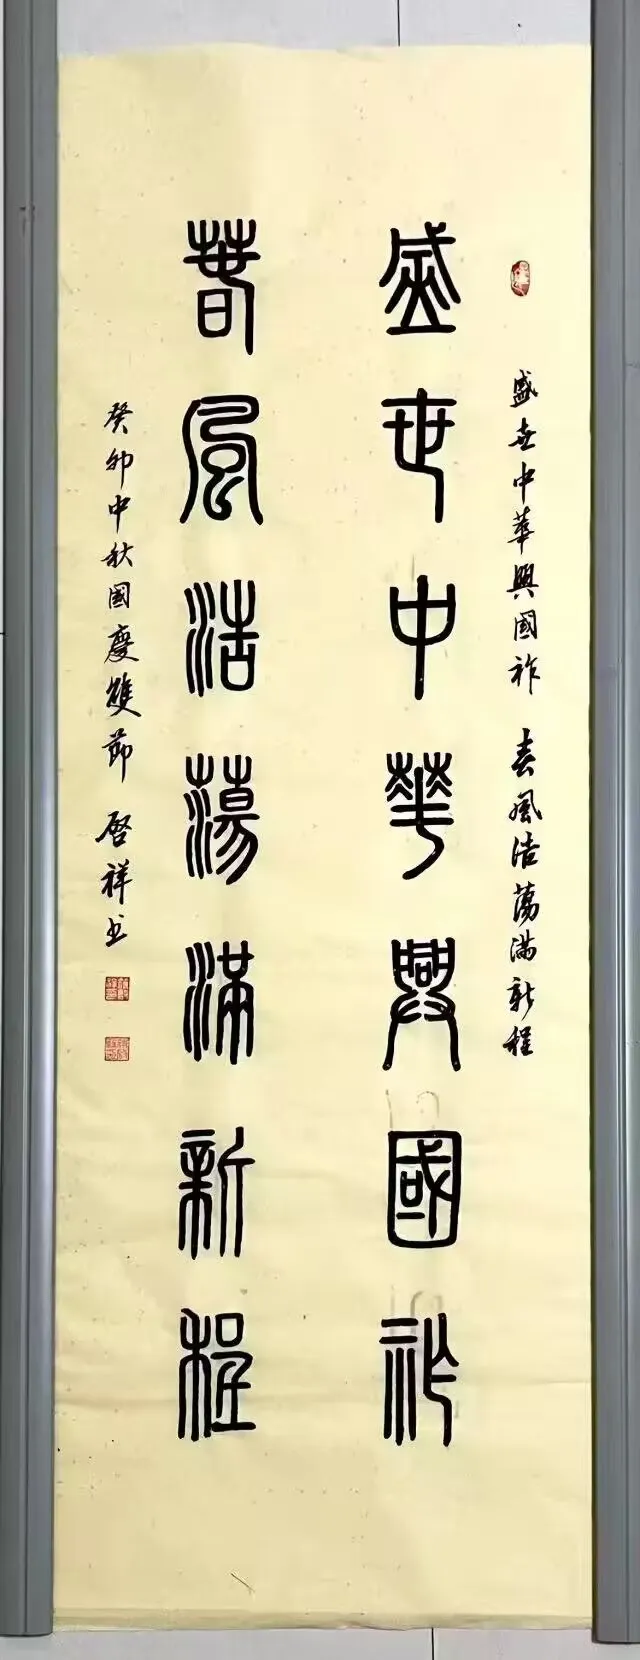 盛世中華興國祚 春風浩蕩滿新程
盛世中華興國祚
春風浩蕩滿新程
癸卯中秋國慶雙節 啓祥书